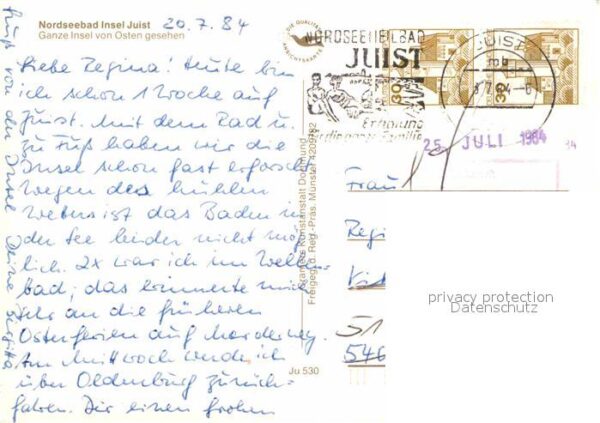 Nordseebad Insel Juist 20.7.84
Ganze Insel von Osten gesehen
Liebe Regina! Heute bin
ich schon 1 Woche auf
Juist. Mit dem Rad u.
zu Fuß haben wir die
Insel schon fast erforscht.
Wegen des kühlen
Wetters ist das Baden in
der See leider nicht mög-
lich. 2x war ich im Wellen-
bad; das erinnerte mich
sehr an die früheren
Osterferien auf Norderney.
Am Mittwoch werde ich
über Oldenburg zurück-
fahren. Dir einen frohen
Gruß von der Insel Deine Birgitta
DIE QUALITÄTS
ANSICHTSKARTE
Cramers Kunstanstalt Dortmund
Freigeg. d. Reg.-Präs. Münster 4209/82
Ju 530
NORDSEEHEILBAD
JUIST
Erholung
für die ganze Familie
JUIST
30
30
25. JULI 1984
Frau
Regi
51
546
privacy protection
Datenschutz